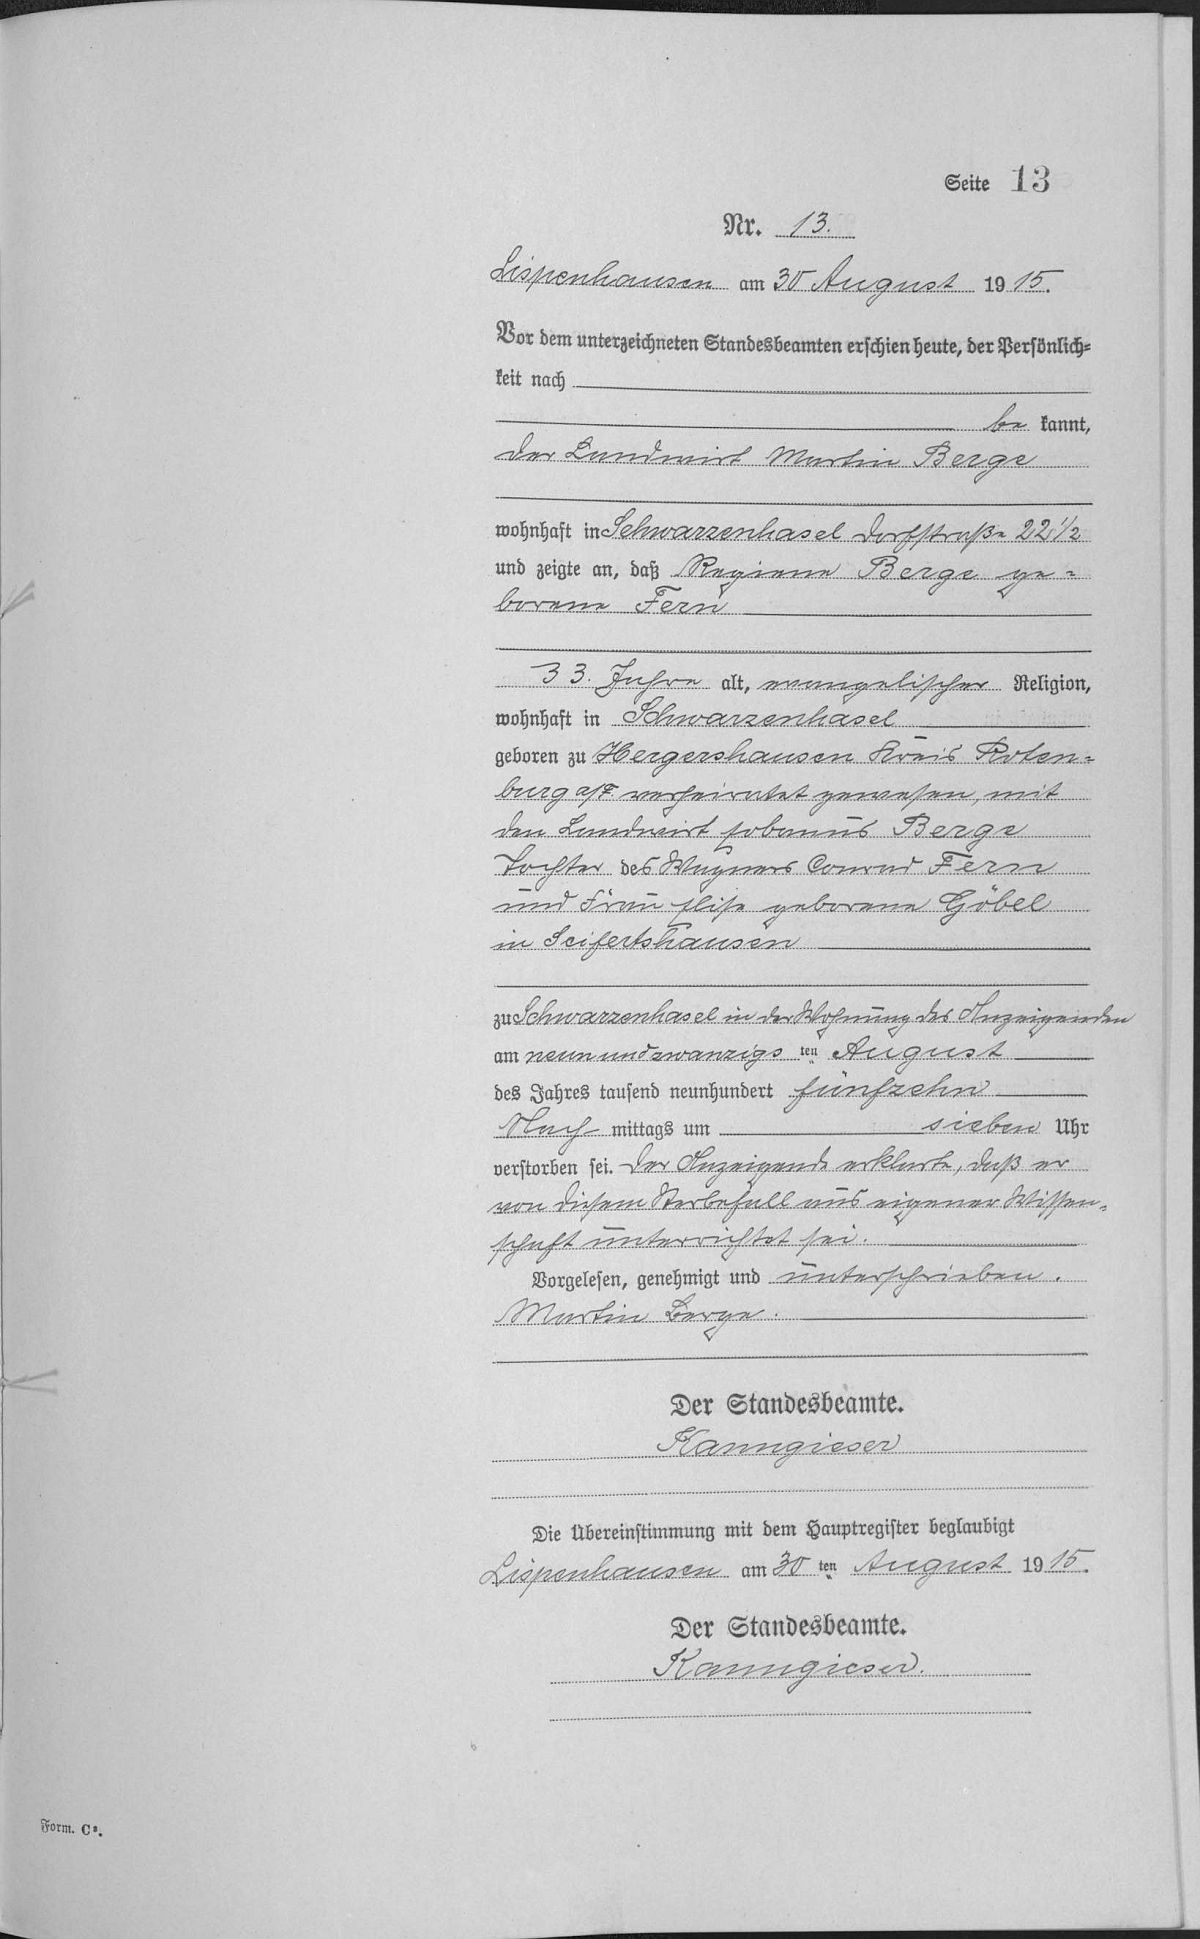 Seite 13
Nr. 13.
Lispenhausen am 30 August 1915.
Vor dem unterzeichneten Standesbeamten erschien heute, der Persönlich=
keit nach
be kannt,
der Landwirt Martin Berge
wohnhaft in Schwarzenhasel Dorfstraße 22 1/2
und zeigte an, daß Regiene Berge ge=
borene Fern
33. Jahre alt, evangelischer Religion,
wohnhaft in Schwarzenhasel
geboren zu Hergershausen Kreis Roten=
burg a/F verheiratet gewesen, mit
den Landwirt Berge
Tochter des Wagners Conrad Fern
und Frau Elise geborene Göbel
in Seifertshausen
zu Schwarzenhasel in der Wohnung des Anzeigenden
am neunundzwanzigs ten August
des Jahres tausend neunhundert fünfzehn
Nach mittags um sieben Uhr
verstorben sei. Der Anzeigende erklarte, daß er
von diesem Sterbefall aus eigener Wissen=
schaft unterrichtet sei.
Vorgelesen, genehmigt und unterschrieben.
Martin Berge.
Der Standesbeamte.
Kanngieser
Die Übereinstimmung mit dem Hauptregister beglaubigt
Lispenhausen am 30 ten August 1915.
Der Standesbeamte.
Kanngieser.
Form. C².